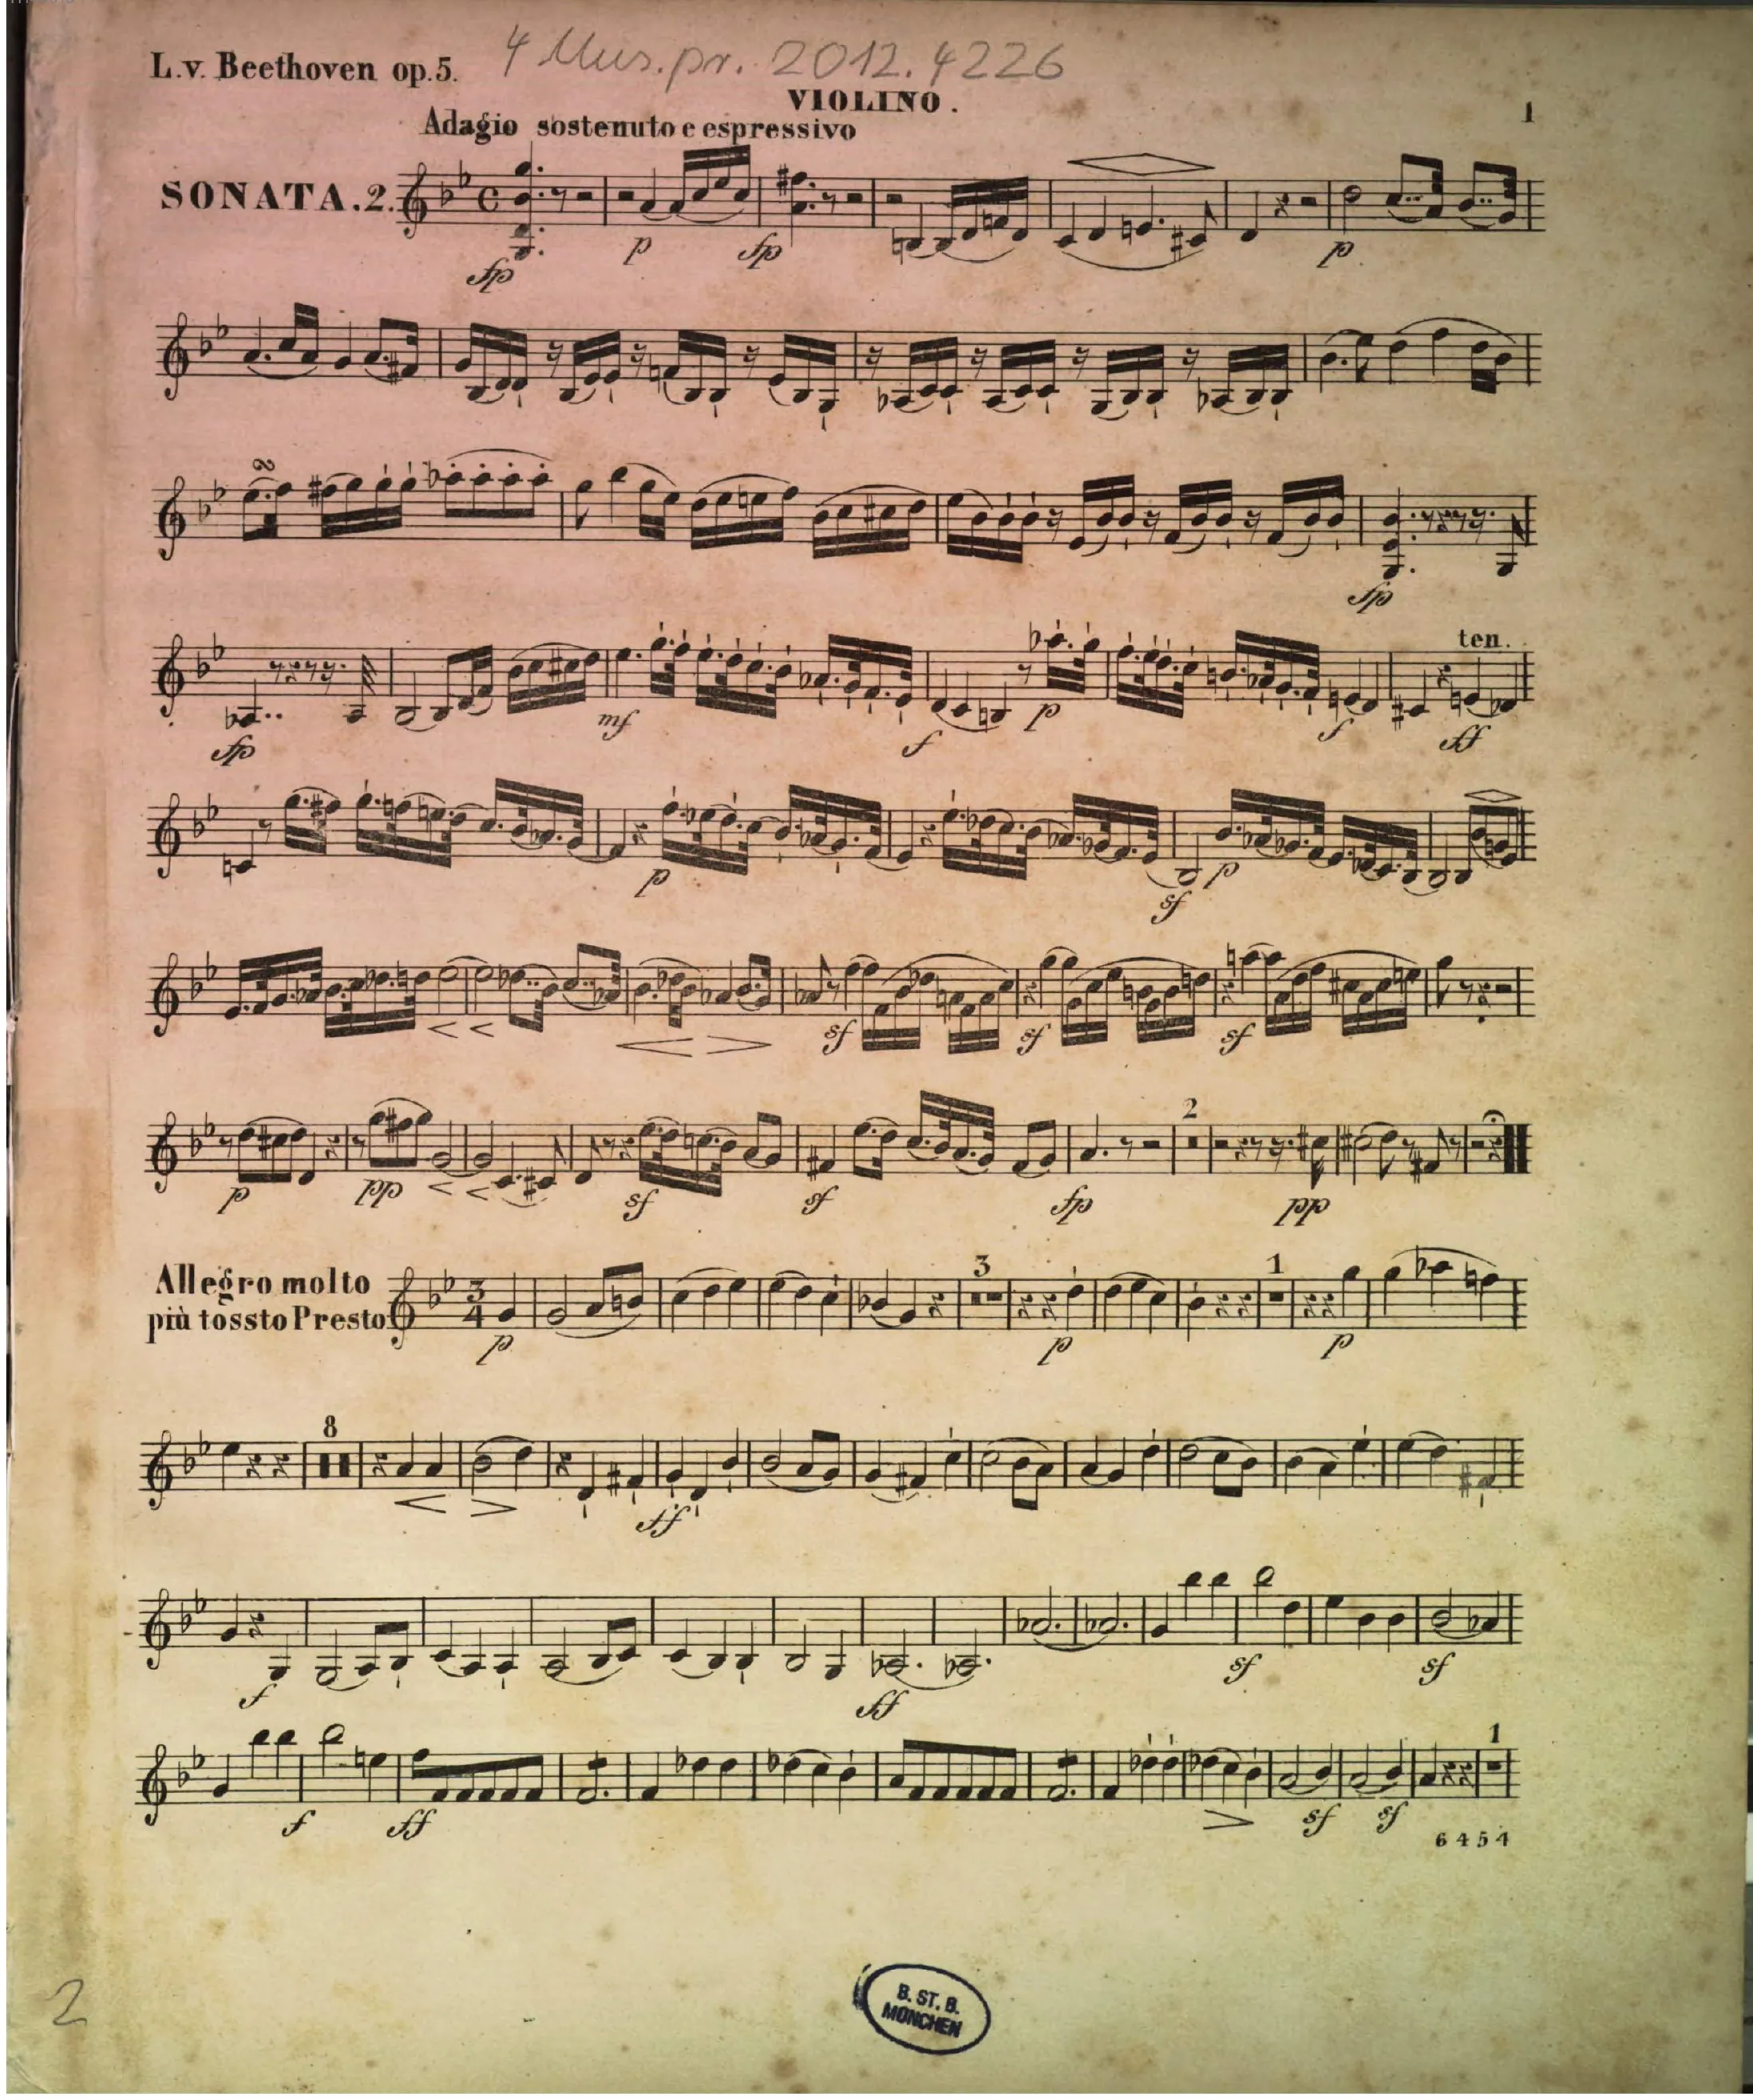 L.v. Beethoven op.5.
4 Mus.pr. 2012.4226
VIOLINO.
1
Adagio sostenuto e espressivo
SONATA.2.
fp
p
fp
p
fp
ten.
fp
mf
f
p
f
ff
p
sf
p
sf
sf
sf
2
p
pp
sf
sf
fp
pp
Allegro molto
più tossto Presto
3
4
3
1
p
p
p
8
ff
f
ff
sf
sf
1
f
ff
sf
sf
6454
B. ST. B.
MÜNCHEN
2